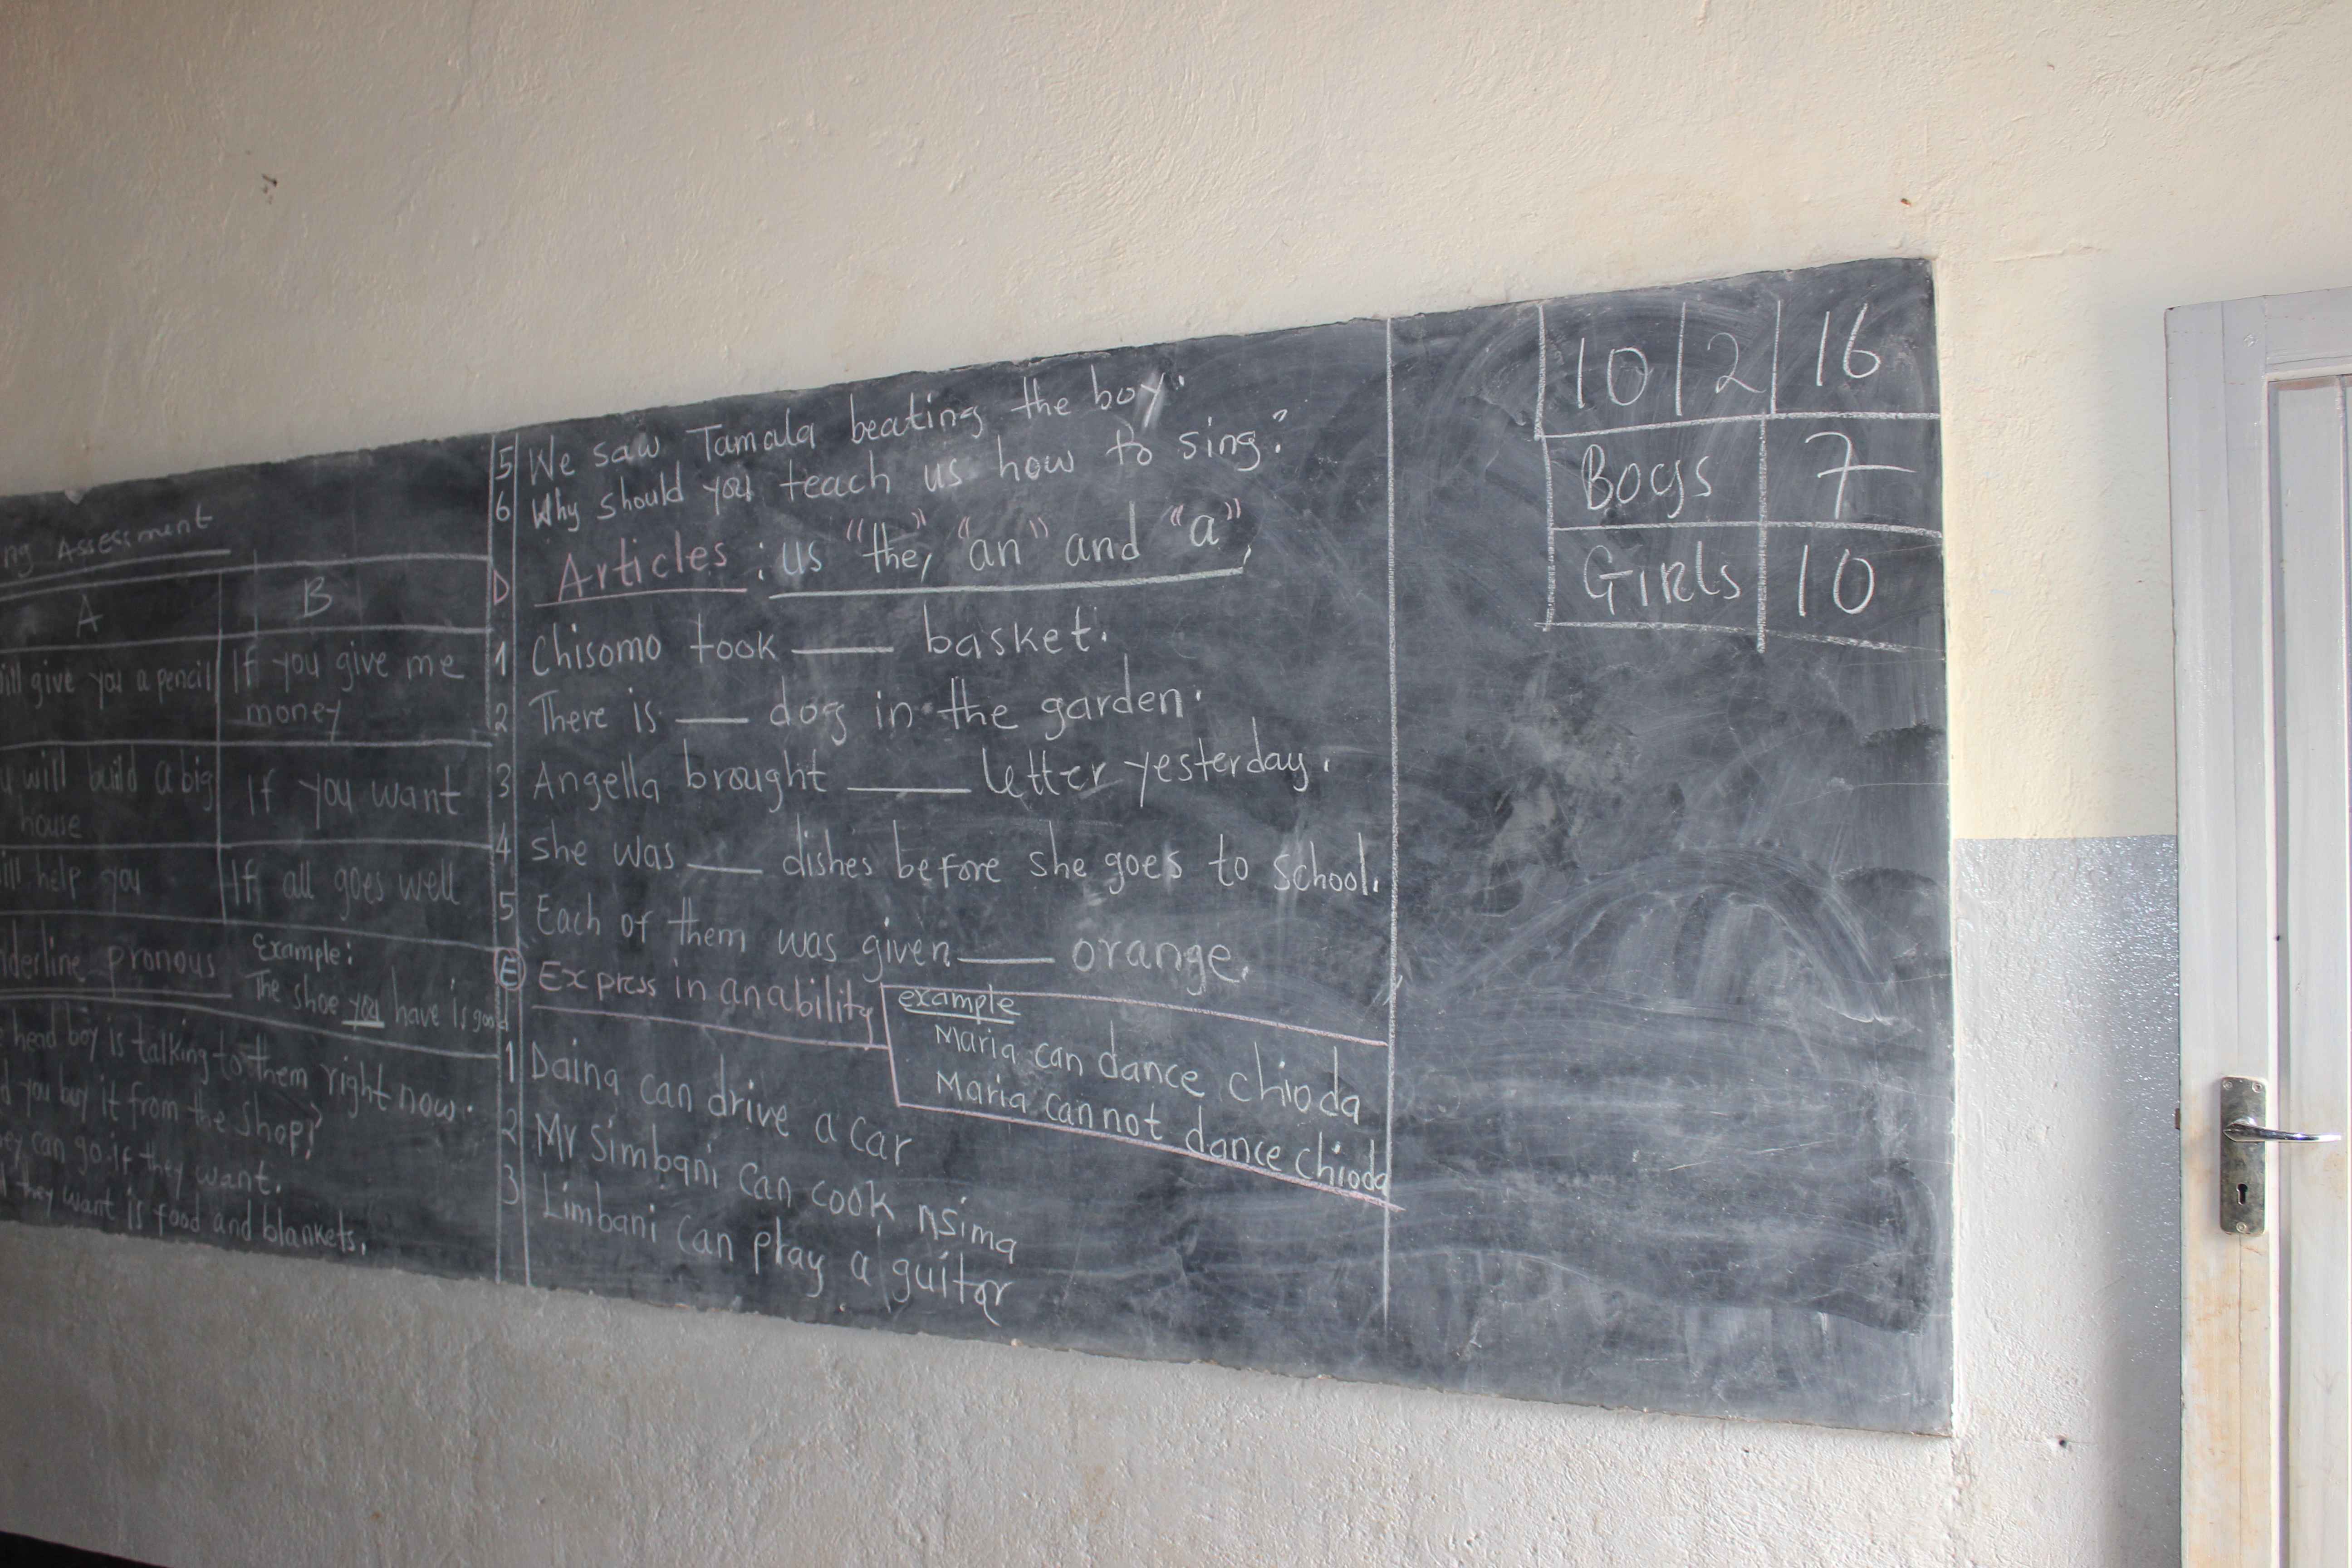 ng Assessment
A B
ill give you a pencil If you give me
money
u will build a big If you want
house
ill help you If all goes well
nderline pronous Example:
The shoe you have is good
e head boy is talking to them right now.
d you buy it from the shop?
ey can go if they want.
they want is food and blankets.
5 We saw Tamala beating the boy.
6 Why should you teach us how to sing?
D Articles : us "the," "an" and "a",
1 Chisomo took ___ basket.
2 There is ___ dog in the garden.
3 Angella brought ___ letter yesterday.
4 she was ___ dishes before she goes to school.
5 Each of them was given ___ orange.
E Express in anability
example
Maria can dance chioda
Maria cannot dance chioda
1 Daina can drive a car
2 Mr Simbani can cook nsima
3 Limbani can play a guitar
10|2|16
Boys 7
Girls 10